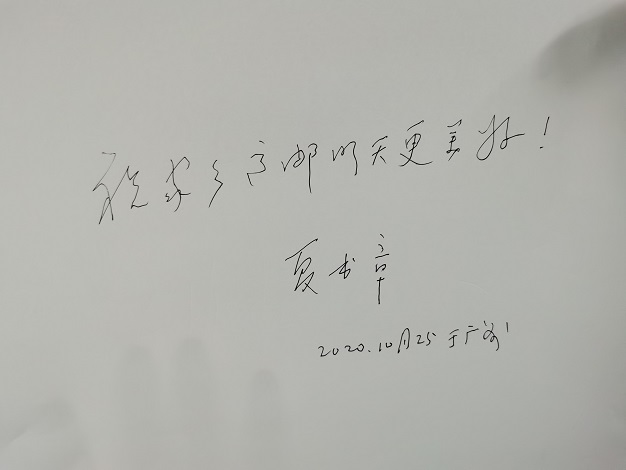 祝家乡高邮明天更美好！
夏书章
2020.10月25于广州